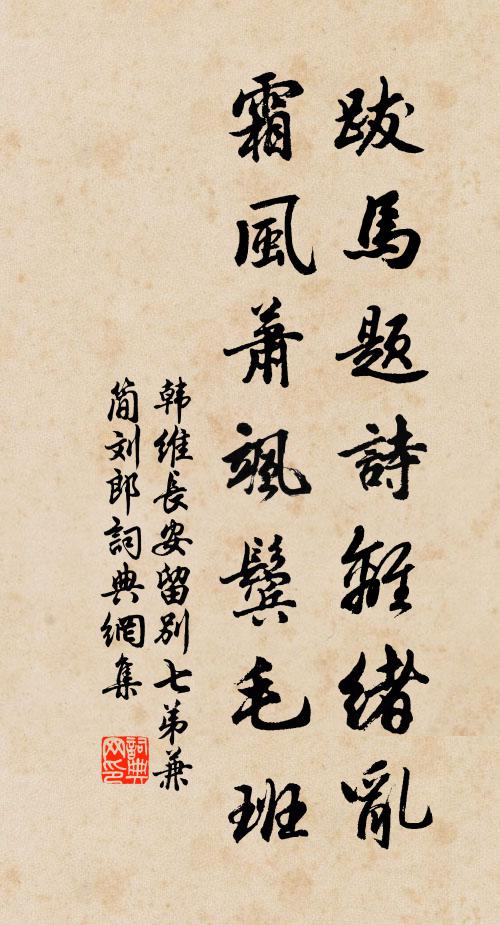 跋馬題詩離緒亂
霜風蕭颯鬓毛班
韩維長安留别七弟兼
简刘郎詞典網集
詞典
网印